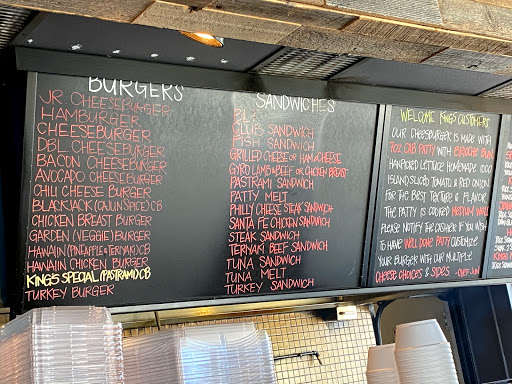 BURGERS
JR. CHEESEBURGER
HAMBURGER
CHEESEBURGER
DBL. CHEESEBURGER
BACON CHEESEBURGER
AVOCADO CHEESEBURGER
CHILI CHEESE BURGER
BLACKJACK (CAJUN SPICE) CB
CHICKEN BREAST BURGER
GARDEN (VEGGIE) BURGER
HAWAIIN (PINEAPPLE & TERIYAKI) CB
HAWAIIN CHICKEN BURGER
KING'S SPECIAL (PASTRAMI) CB
TURKEY BURGER
SANDWICHES
CLUB SANDWICH
FISH SANDWICH
GRILLED CHEESE OR HAM & CHEESE
GYRO LAMB & BEEF OR CHICKEN BREAST
PASTRAMI SANDWICH
PATTY MELT
PHILLY CHEESE STEAK SANDWICH
SANTA FE CHICKEN SANDWICH
STEAK SANDWICH
TERIYAKI BEEF SANDWICH
TUNA SANDWICH
TUNA MELT
TURKEY SANDWICH
WELCOME KING'S CUSTOMERS
OUR CHEESEBURGER IS MADE WITH
7OZ CAB PATTY WITH BRIOCHE BUN
HANDPICKED LETTUCE HOMEMADE 1000
ISLAND SLICED TOMATO & RED ONION
FOR THE BEST TEXTURE & FLAVOR
THE PATTY IS COOKED MEDIUM WELL
PLEASE NOTIFY THE CASHIER IF YOU WISH
TO HAVE WELL DONE PATTY CUSTOMIZE
YOUR BURGER WITH OUR MULTIPLE
CHEESE CHOICES & SIDES -CHEF JUN